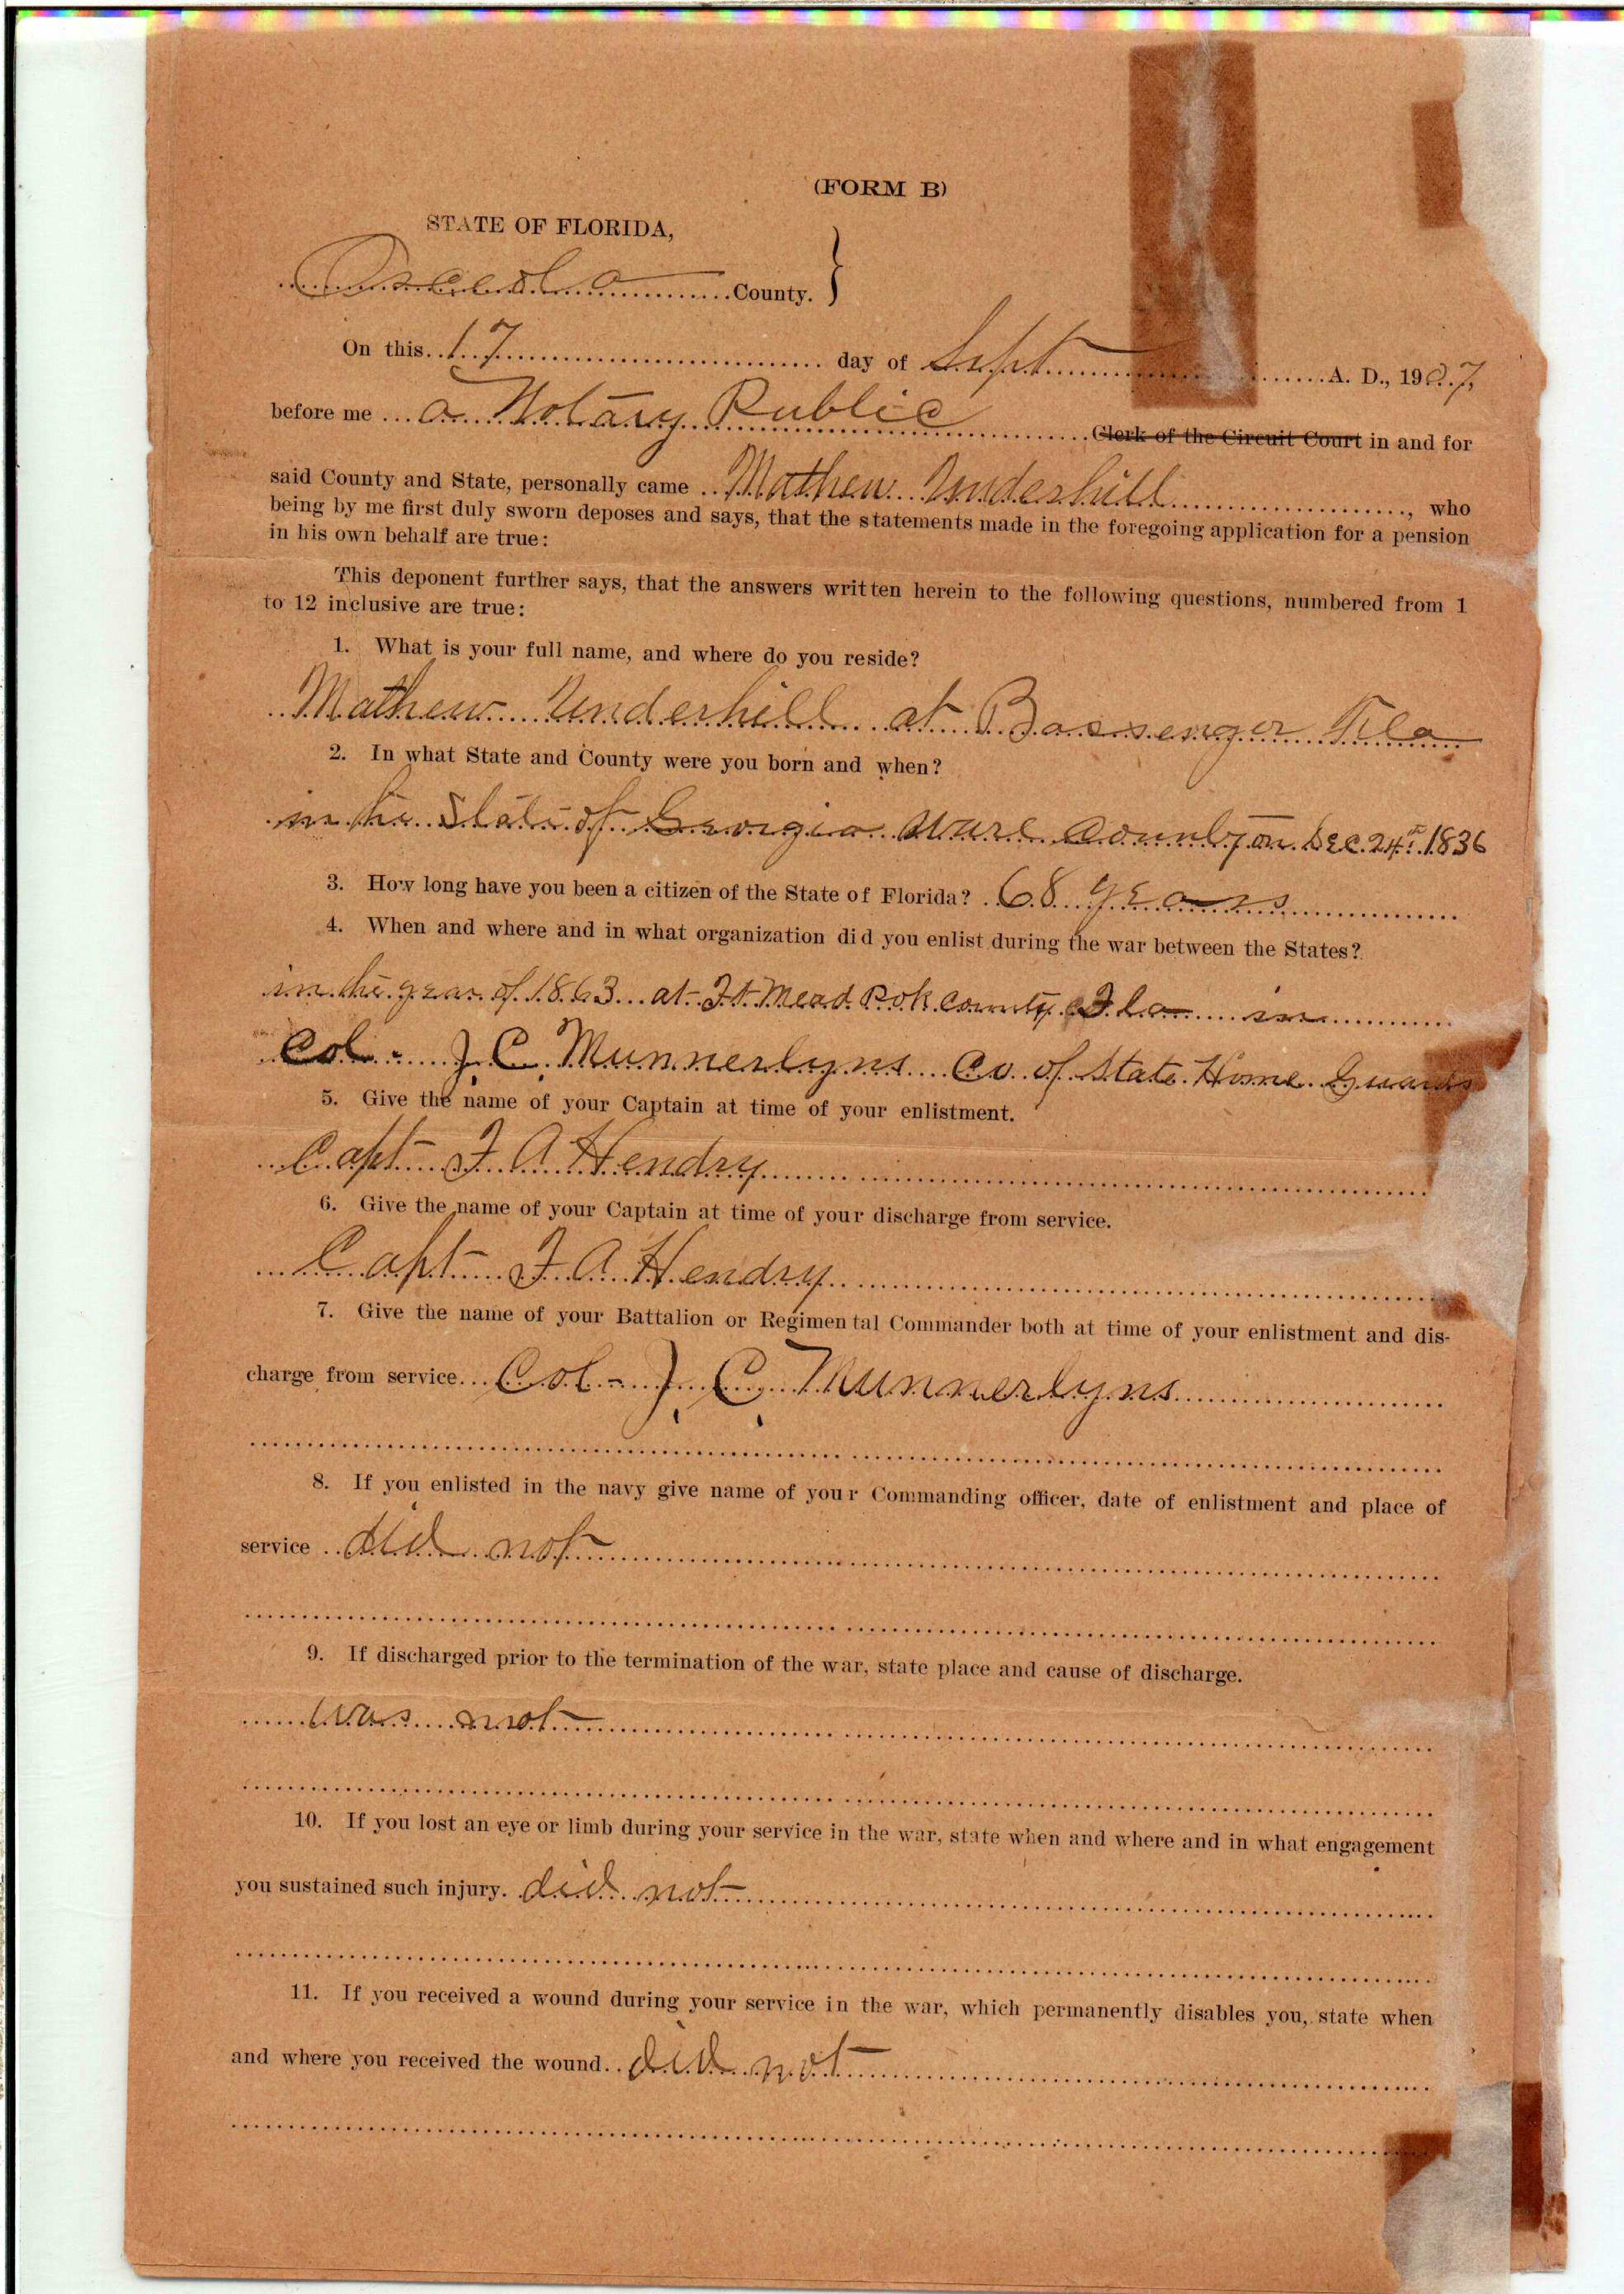 (FORM B)
STATE OF FLORIDA,
Osceola County. }
On this 17 day of Sept A. D., 1907,
before me a Notary Public Clerk of the Circuit Court in and for
said County and State, personally came Mathew Underhill, who
being by me first duly sworn deposes and says, that the statements made in the foregoing application for a pension
in his own behalf are true:
This deponent further says, that the answers written herein to the following questions, numbered from 1
to 12 inclusive are true:
1. What is your full name, and where do you reside?
Mathew Underhill at Bassenger Fla
2. In what State and County were you born and when?
in the State of Georgia Ware County on Dec. 24th 1836
3. How long have you been a citizen of the State of Florida? 68 years
4. When and where and in what organization did you enlist during the war between the States?
in the year of 1863 at Ft Mead Polk County Fla in
Col - J. C. Munnerlyns Co of State Home Guards
5. Give the name of your Captain at time of your enlistment.
Capt F A Hendry
6. Give the name of your Captain at time of your discharge from service.
Capt F A Hendry
7. Give the name of your Battalion or Regimental Commander both at time of your enlistment and dis-
charge from service Col - J. C. Munnerlyns
8. If you enlisted in the navy give name of your Commanding officer, date of enlistment and place of
service did not
9. If discharged prior to the termination of the war, state place and cause of discharge.
was not
10. If you lost an eye or limb during your service in the war, state when and where and in what engagement
you sustained such injury. did not
11. If you received a wound during your service in the war, which permanently disables you, state when
and where you received the wound. did not